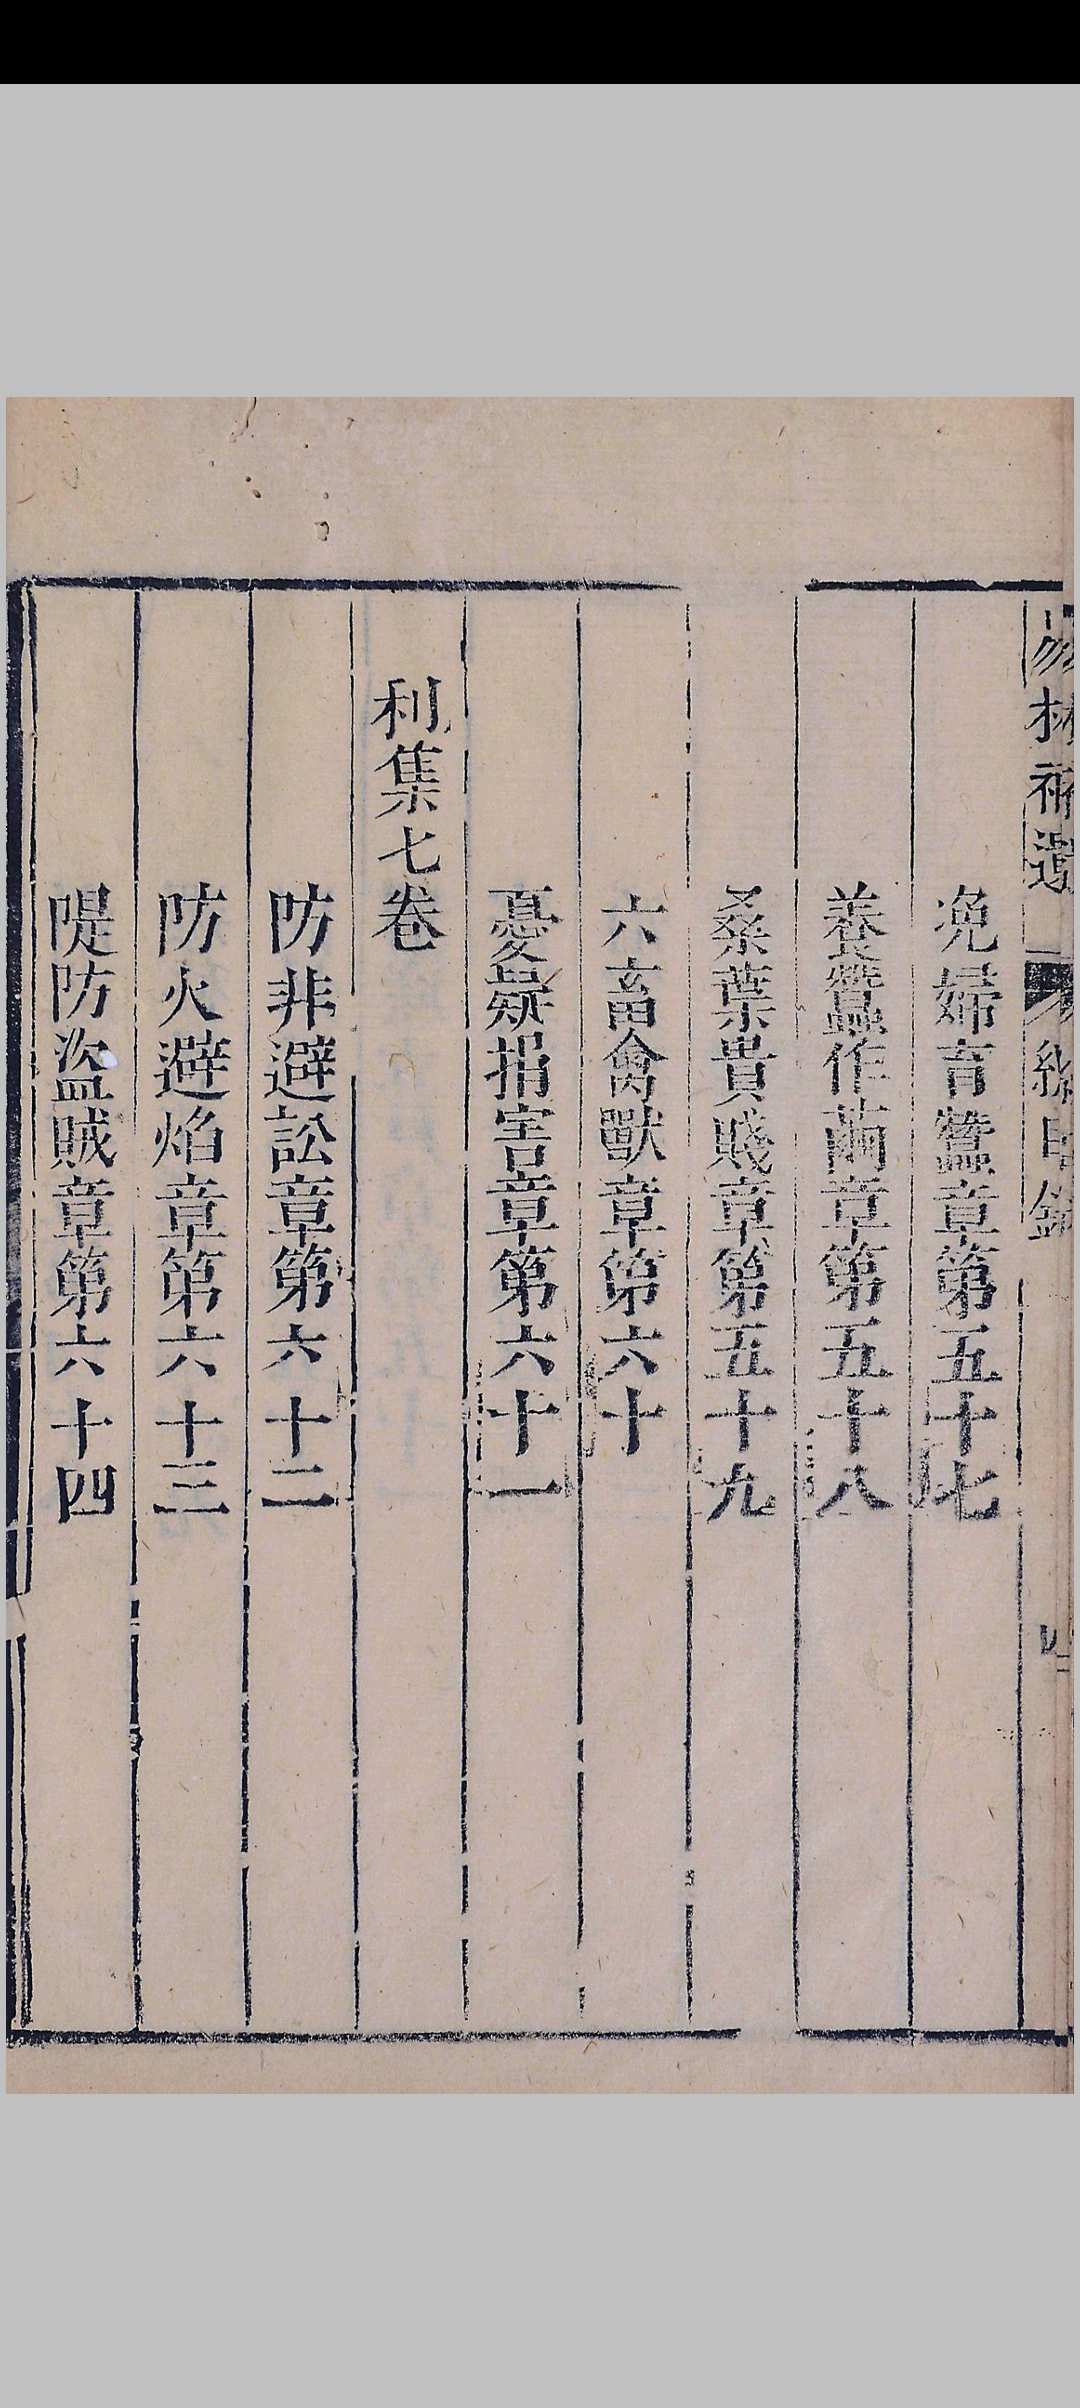 易林補遺 總目錄 四
浼婦育蠶章第五十七
養蠶作繭章第五十八
桑葉貴賤章第五十九
六畜禽獸章第六十
憂疑捐害章第六十一
利集七卷
防非避訟章第六十二
防火避焰章第六十三
隄防盜賊章第六十四